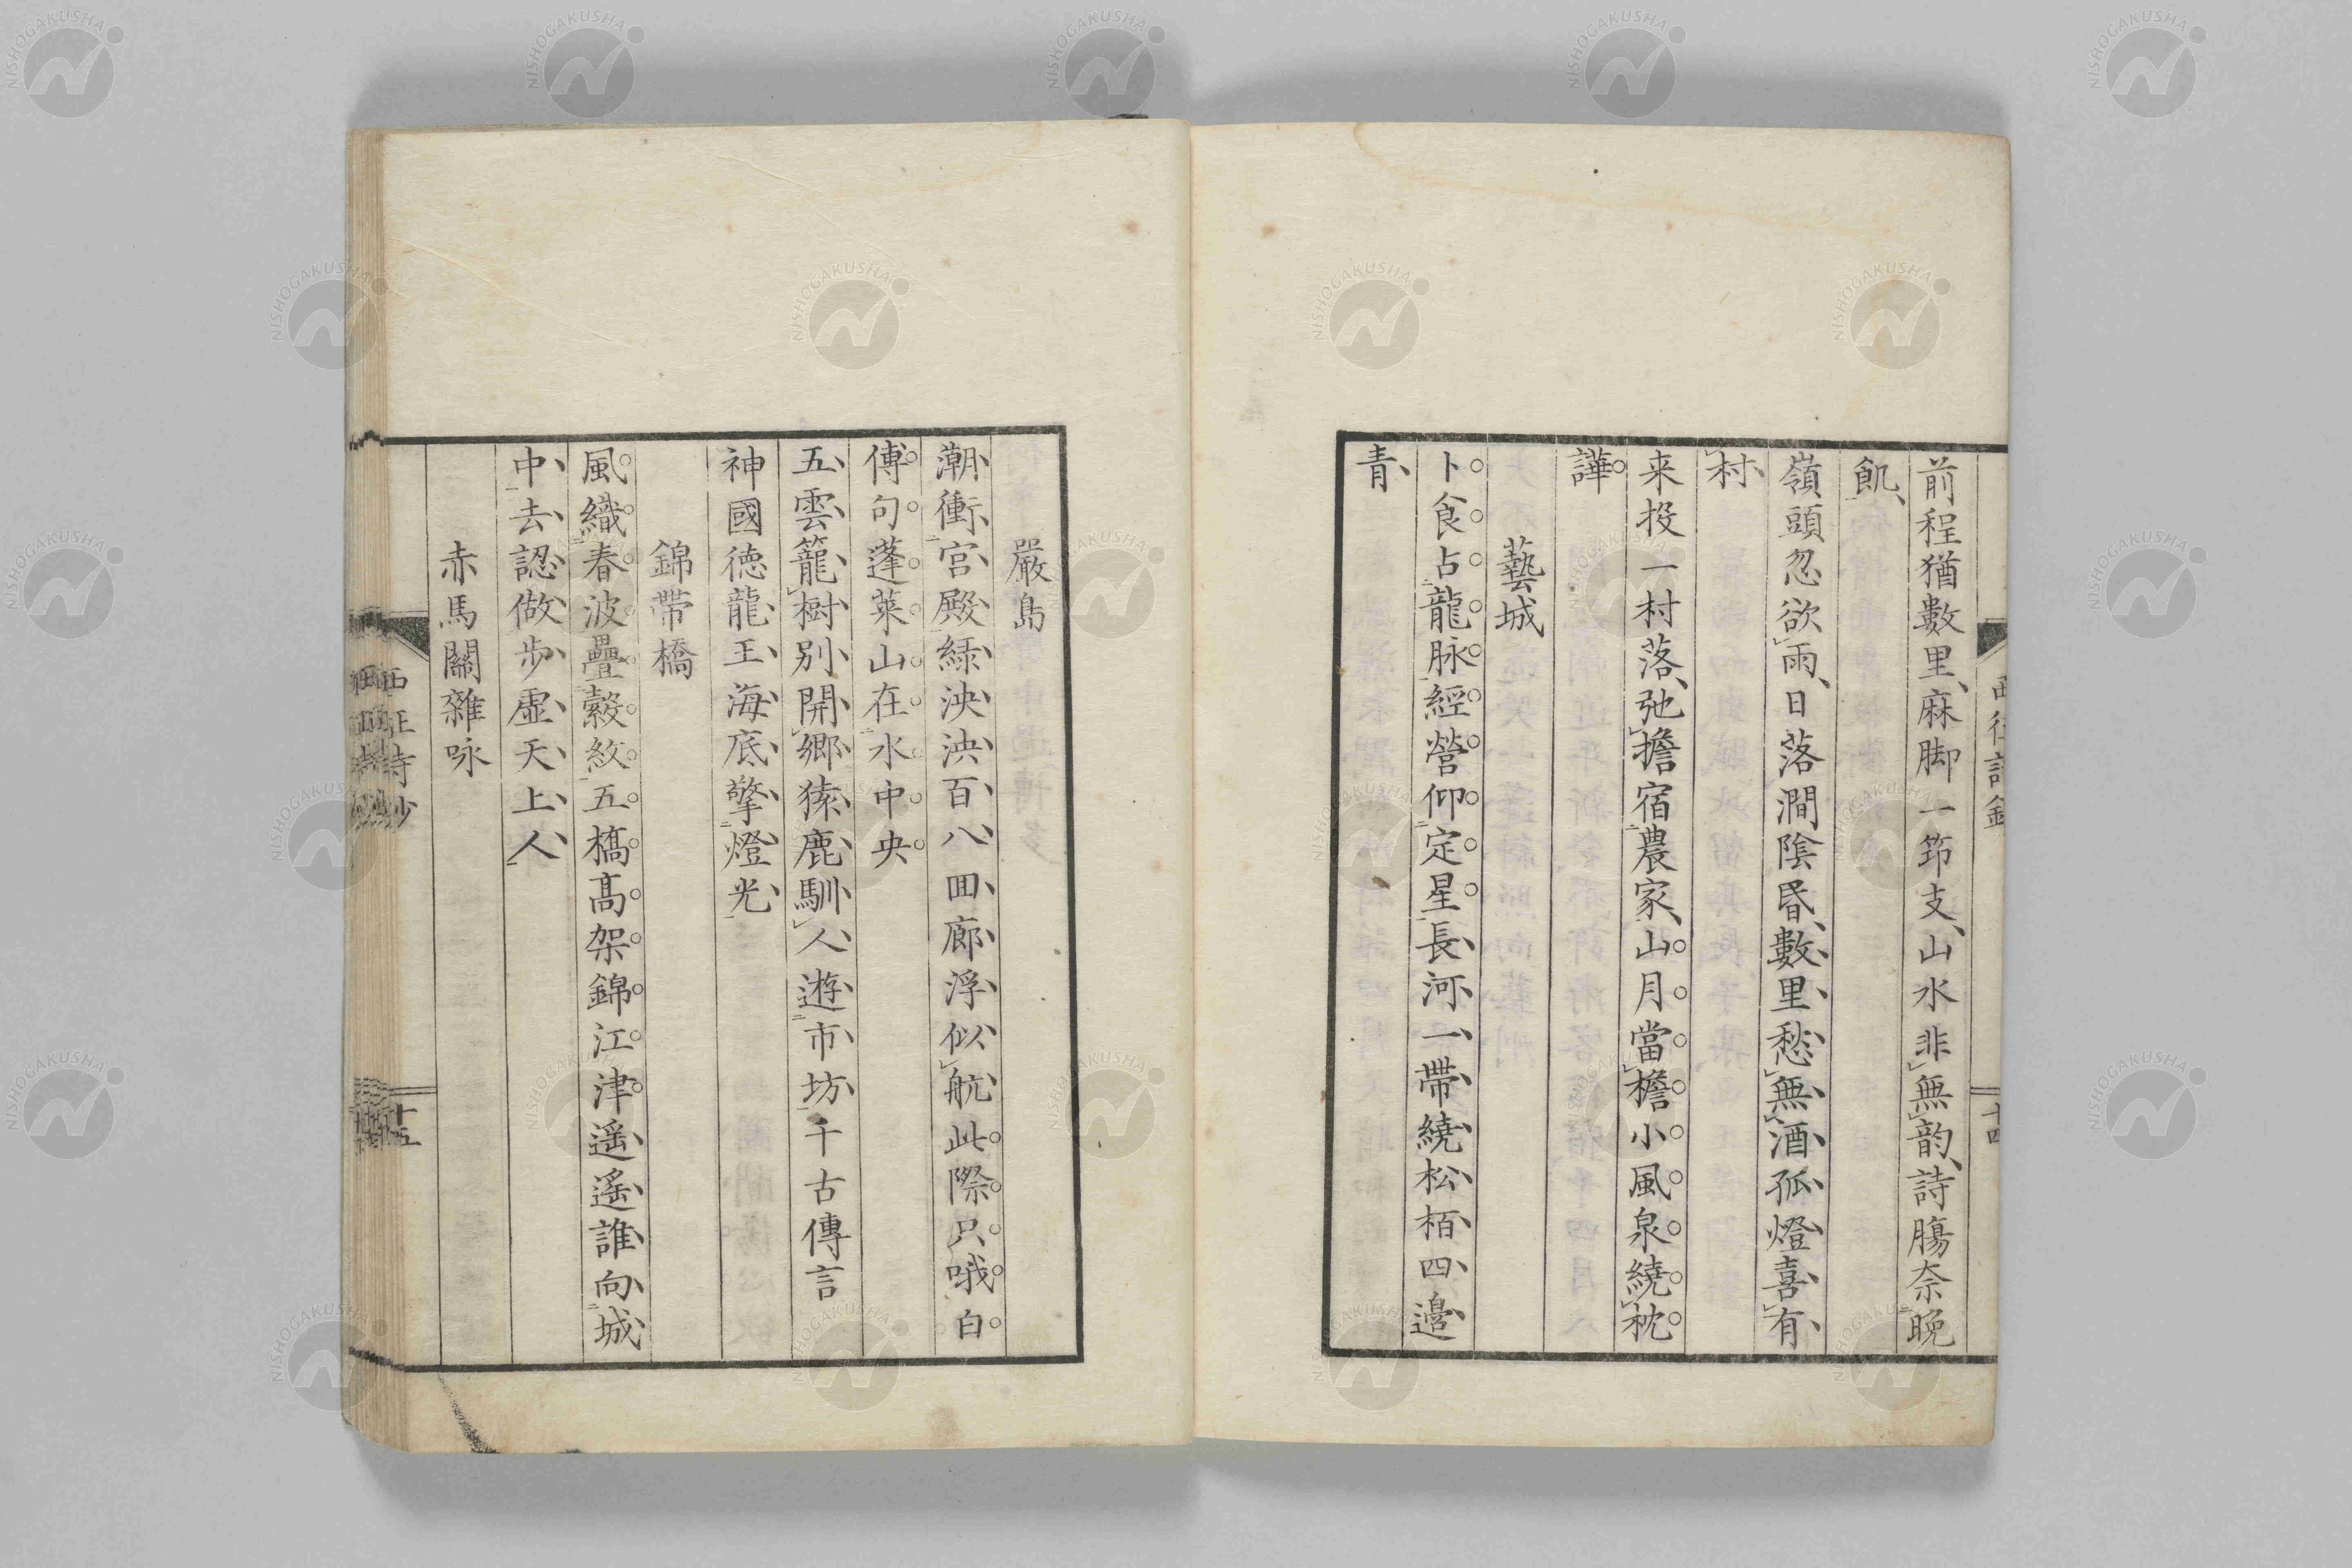 前程猶數里麻脚一笻支山水非無韵詩膓奈晩
飢
嶺頭忽欲雨日落澗陰昏數里愁無酒孤燈喜有
村
来投一村落弛擔宿農家山月當檐小風泉繞枕
譁
藝城
卜食占龍脉經營仰定星長河一帶繞松栢四邊
青
十四
嚴島
潮衝宮殿綠泱泱百八囬廊浮似航此際只哦白
傅句蓬萊山在水中央
五雲籠樹別開鄉猿鹿馴人遊市坊千古傳言
神國徳龍王海底擎燈光
錦帶橋
風織春波疊縠紋五橋髙架錦江津遥遥誰向城
中去認做步虛天上人
赤馬關雜咏
十五
NISHOGAKUSHA